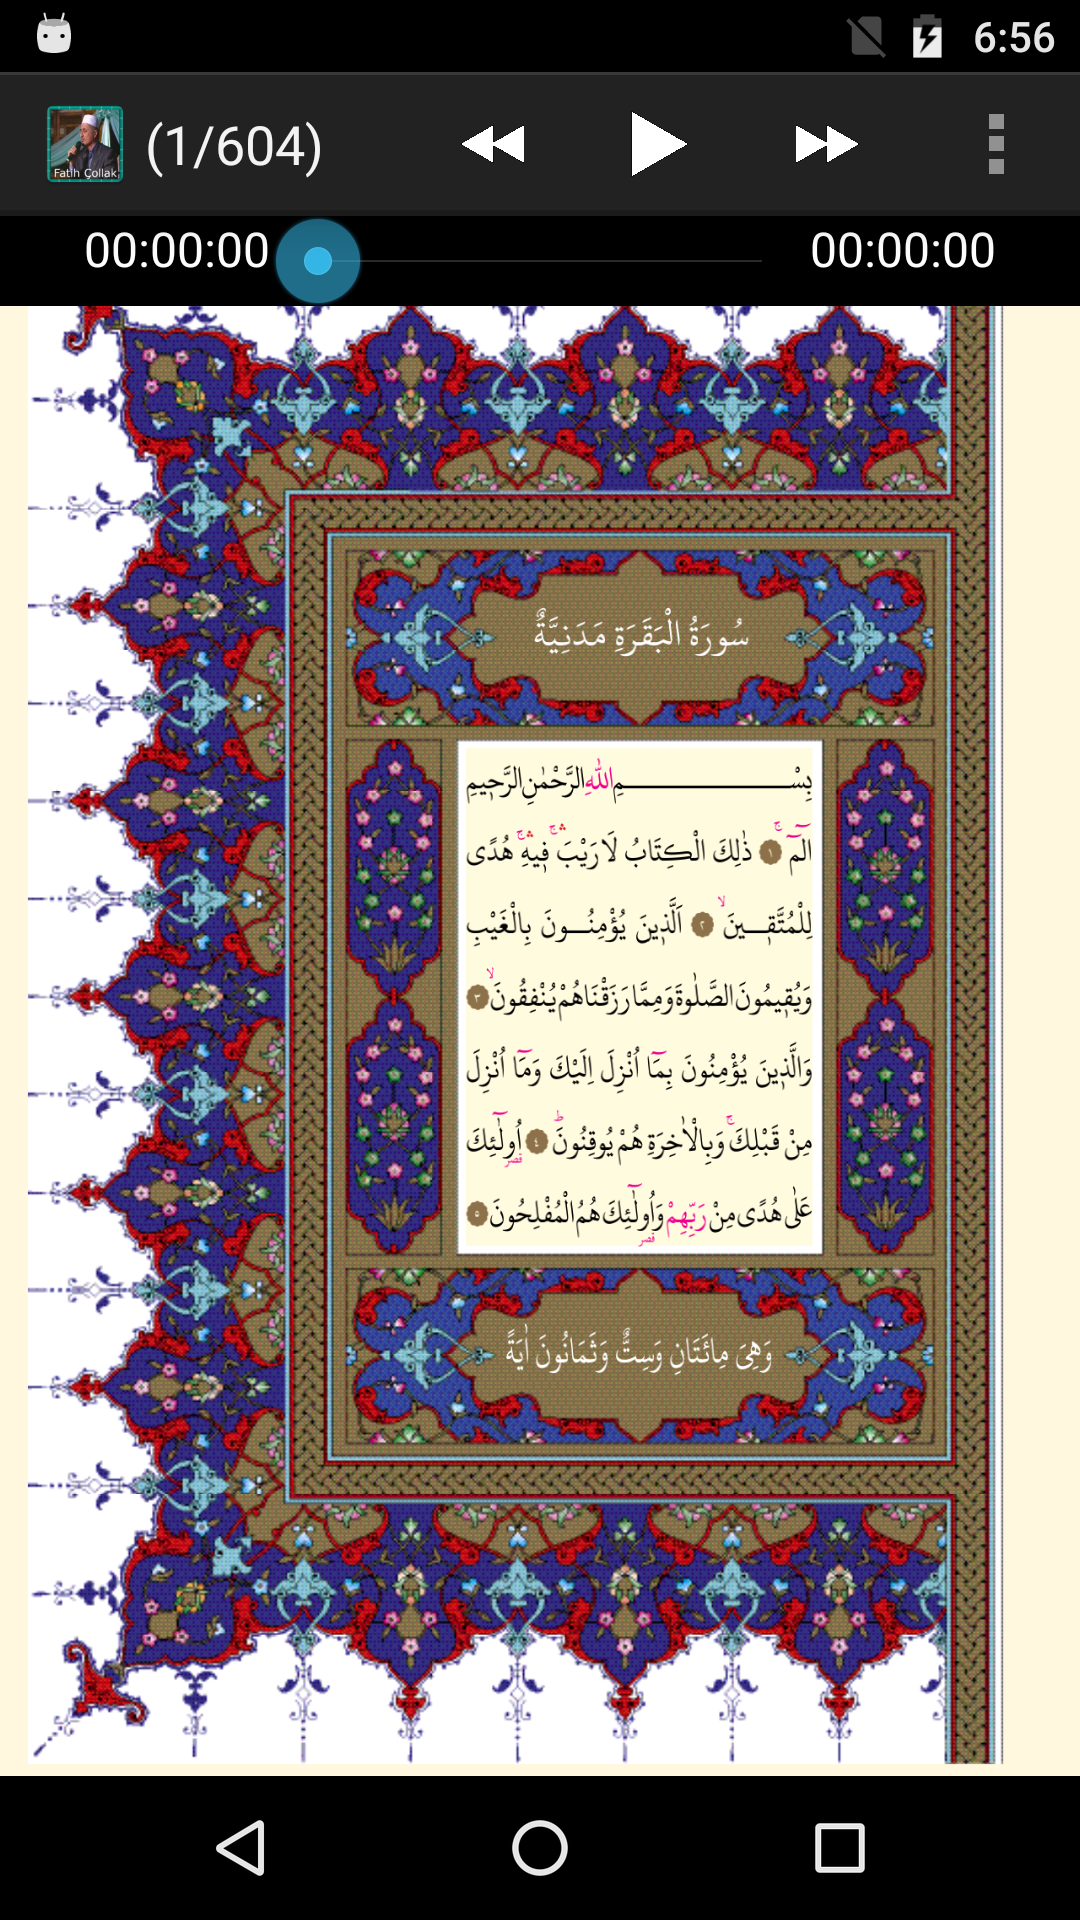 6:56
Fatih Çollak
(1/604)
00:00:00
00:00:00
سُورَةُ الْبَقَرَةِ مَدَنِيَّةٌ
بِسْمِ اللّٰهِ الرَّحْمٰنِ الرَّح۪يمِ
الٓمٓ ۚ ﴿١﴾ ذٰلِكَ الْكِتَابُ لَا رَيْبَ ۚۛ ف۪يهِ ۚۛ هُدًى
لِلْمُتَّق۪ينَ ۙ ﴿٢﴾ اَلَّذ۪ينَ يُؤْمِنُونَ بِالْغَيْبِ
وَيُق۪يمُونَ الصَّلٰوةَ وَمِمَّا رَزَقْنَاهُمْ يُنْفِقُونَ ۙ ﴿٣﴾
وَالَّذ۪ينَ يُؤْمِنُونَ بِمَٓا اُنْزِلَ اِلَيْكَ وَمَٓا اُنْزِلَ
مِنْ قَبْلِكَ ۚ وَبِالْاٰخِرَةِ هُمْ يُوقِنُونَ ۜ ﴿٤﴾ اُولٰٓئِكَ
قصر
عَلٰى هُدًى مِنْ رَبِّهِمْ وَاُولٰٓئِكَ هُمُ الْمُفْلِحُونَ ﴿٥﴾
قصر
وَهِيَ مِائَتَانِ وَسِتٌّ وَثَمَانُونَ اٰيَةً